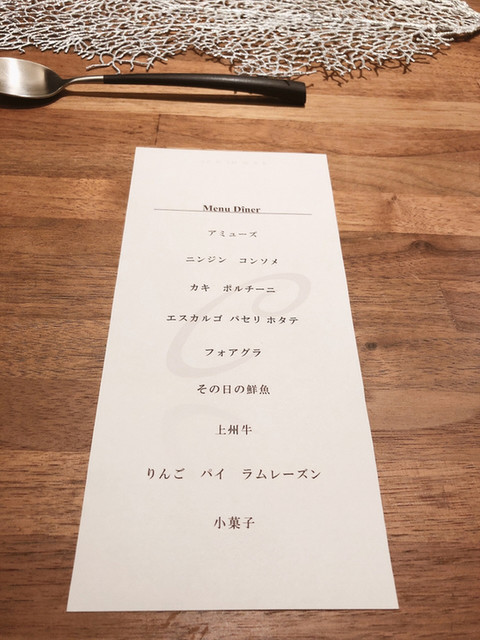 Menu Dîner
アミューズ
ニンジン　コンソメ
カキ　ポルチーニ
エスカルゴ パセリ ホタテ
フォアグラ
その日の鮮魚
上州牛
りんご　パイ　ラムレーズン
小菓子